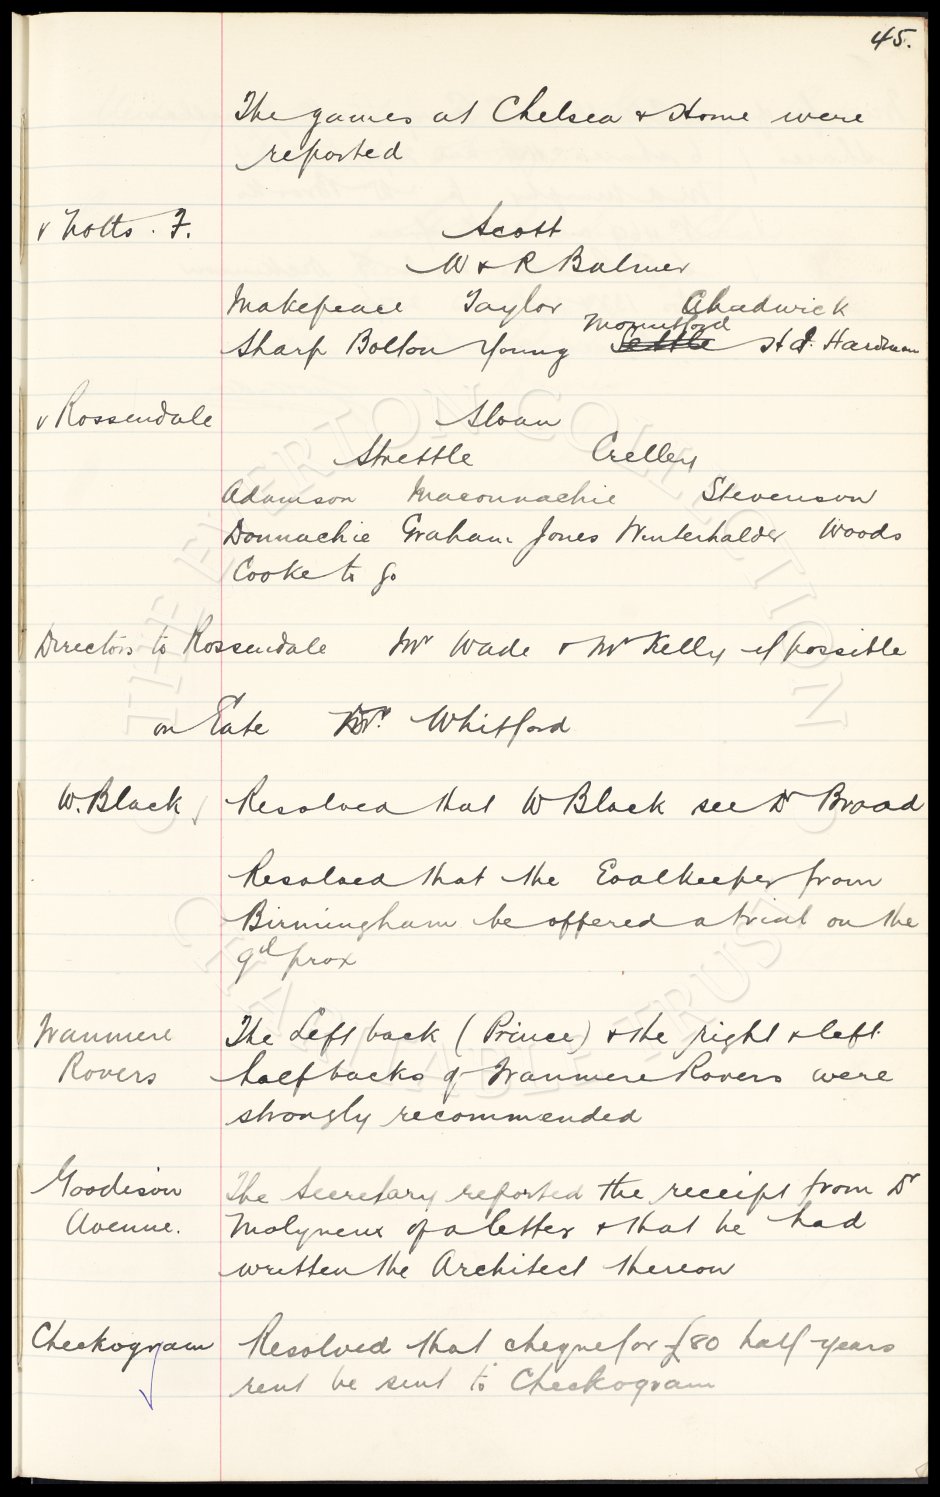 45.
The games at Chelsea & Home were
reported
v Notts. F. Scott
W & R Balmer
Makepeace Taylor Chadwick
Mountford
Sharp Bolton Young Settle H.P. Hardman
v Rossendale Sloan
Strettle Crelley
Adamson Maconnachie Stevenson
Donnachie Graham Jones Winterhalder Woods
Cooke to go
Directors to Rossendale Mr Wade & Mr Kelly if possible
on Gate Dr. Whitford
W. Black Resolved that W Black see Dr Broad
Resolved that the Goalkeeper from
Birmingham be offered a trial on the
9th prox
Tranmere The Left back (Prince) & the right & left
Rovers half backs of Tranmere Rovers were
strongly recommended
Goodison The Secretary reported the receipt from Dr
Avenue. Molyneux of a letter & that he had
written the Architect thereon
Checkogram Resolved that cheque for £80 half-years
rent be sent to Checkogram
THE EVERTON COLLECTION
CHARITABLE TRUST